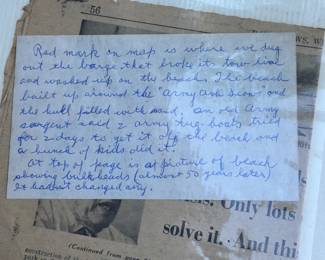 56
NEWS, W
Red mark on map is where we dug
out the barge that broke its tow line
and washed up on the beach. The beach
built up around the "Army Ash Scow" and
the hull filled with sand, an old Army
sargent said 2 army tug boats tried
for 2 days to get it off the beach and
a bunch of kids did it.
At top of page is a picture of beach
showing bulkheads (almost 50 years later)
It hadn't changed any.
Only lots
solve it. And thi
(Continued from
construction of
park